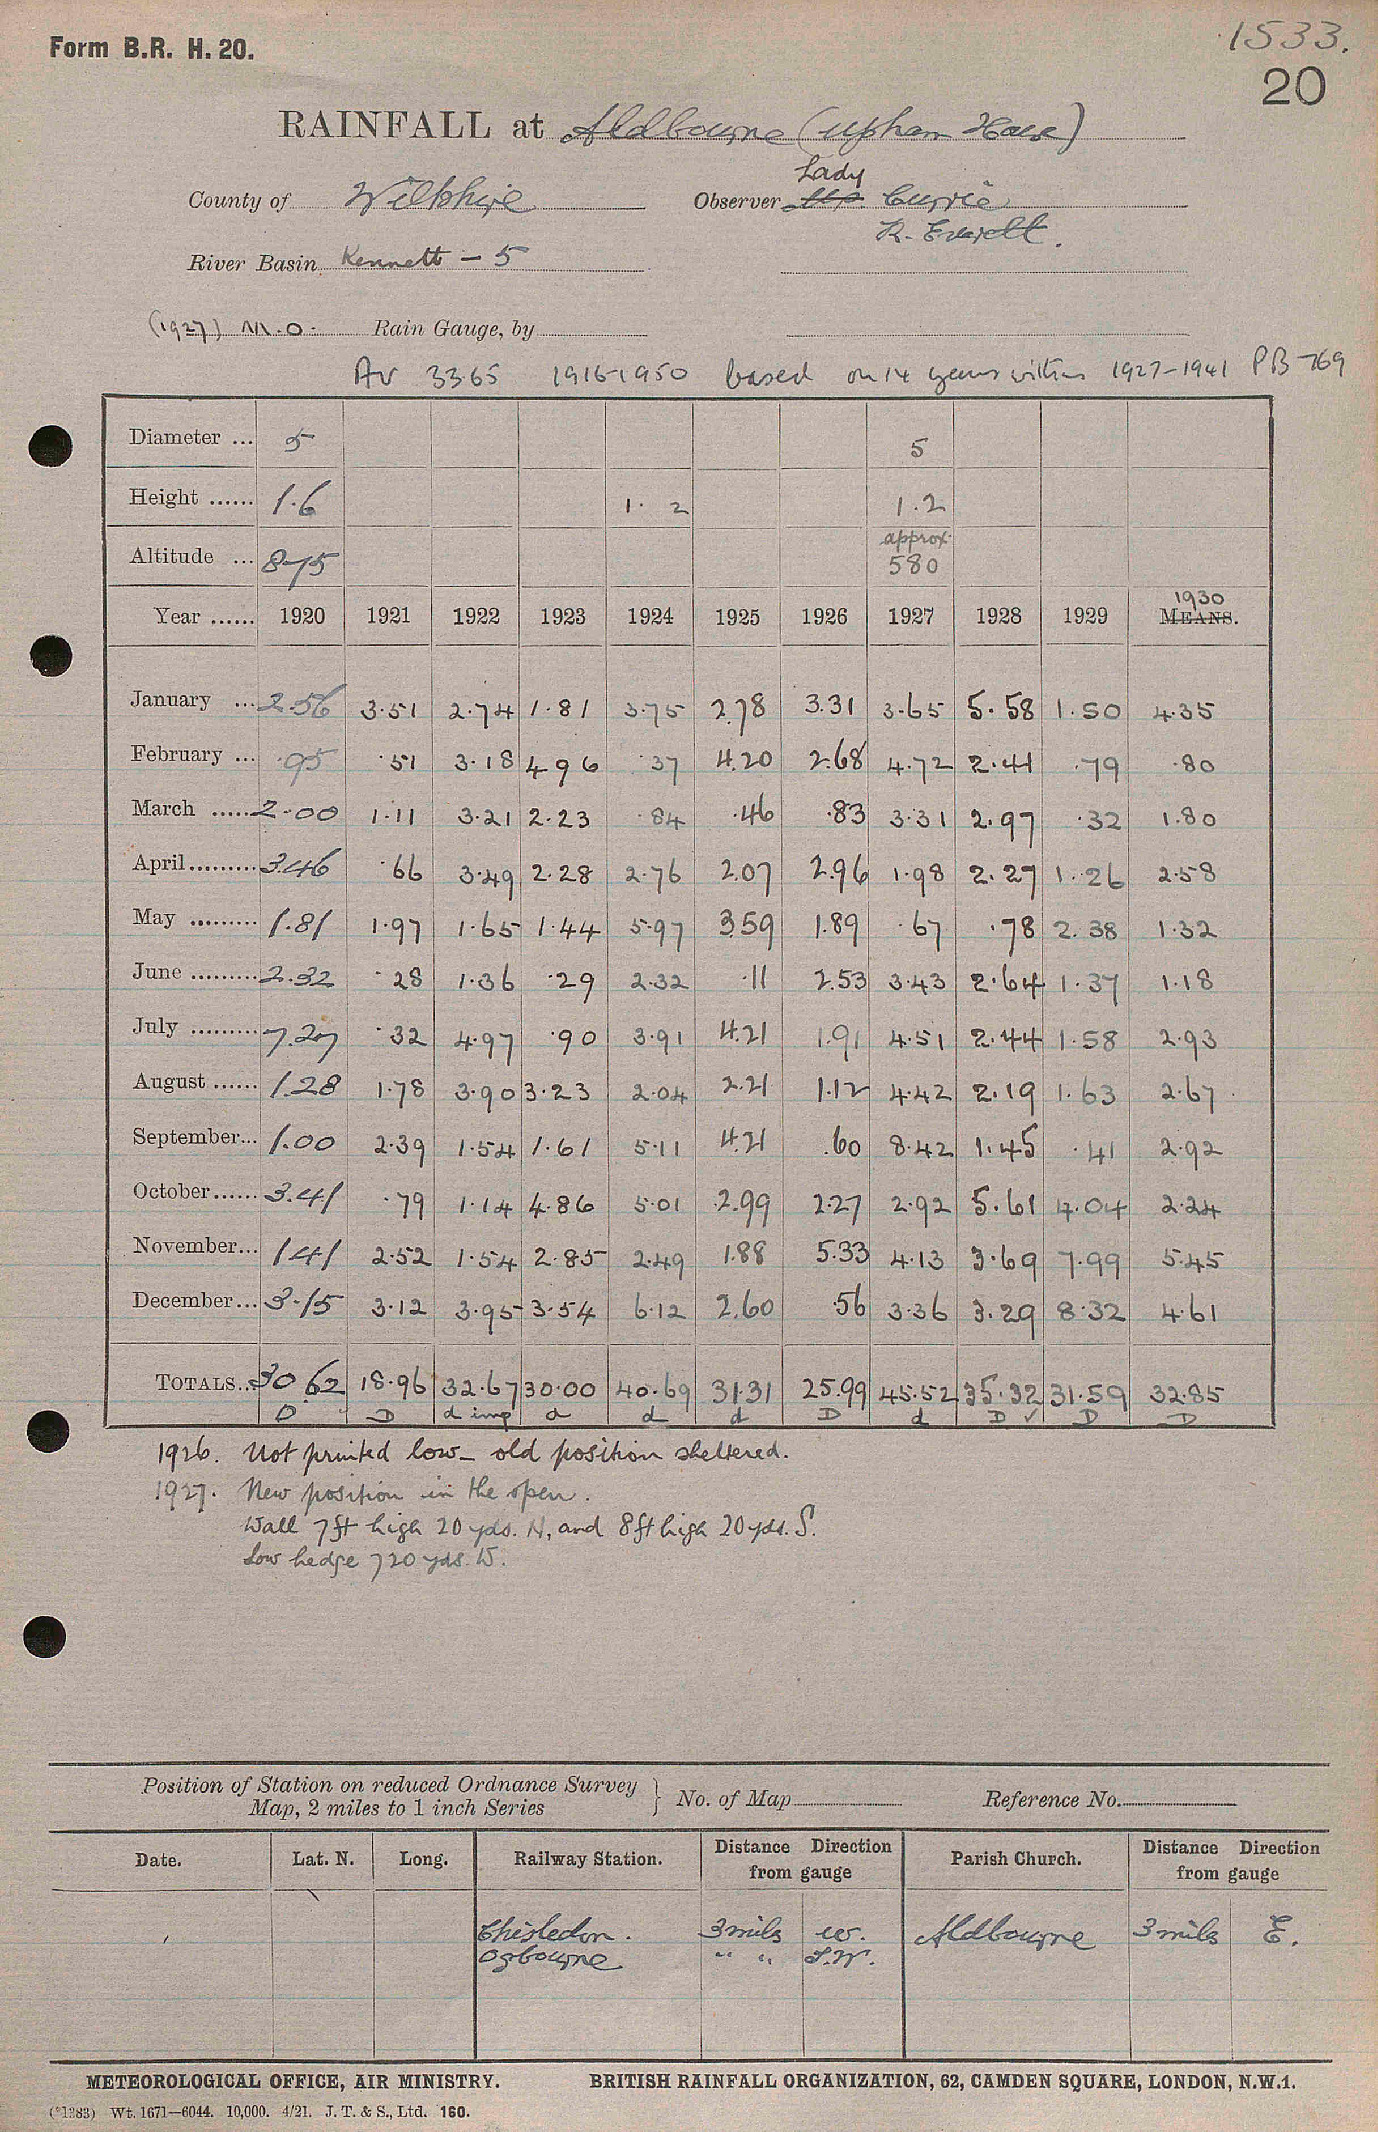 Form B.R. H. 20.
1533.
20
RAINFALL at Aldbourne (Upham House)
County of Wiltshire
Observer Mrs. Lady Currie
R. Everett.
River Basin Kennett - 5
(1927) M.O. Rain Gauge, by
Av 33.65 1916-1950 based on 14 years within 1927-1941 PB 769
Diameter ... 5 5
Height ...... 1.6 1. 2 1.2
Altitude ... 875 approx. 580
Year ...... 1920 1921 1922 1923 1924 1925 1926 1927 1928 1929 MEANS. 1930
January ... 2.56 3.51 2.74 1.81 3.75 2.78 3.31 3.65 5.58 1.50 4.35
February ... .95 .51 3.18 4 96 .37 4.20 2.68 4.72 2.41 .79 .80
March ...... 2.00 1.11 3.21 2.23 .84 .46 .83 3.31 2.97 .32 1.80
April ......... 3.46 .66 3.49 2.28 2.76 2.07 2.96 1.98 2.27 1.26 2.58
May ......... 1.81 1.97 1.65 1.44 5.97 3.59 1.89 .67 .78 2.38 1.32
June ......... 2.32 .28 1.36 .29 2.32 .11 2.53 3.43 2.64 1.37 1.18
July ......... 7.27 .32 4.97 .90 3.91 4.21 1.91 4.51 2.44 1.58 2.93
August ...... 1.28 1.78 3.90 3.23 2.04 2.21 1.12 4.42 2.19 1.63 2.67
September... 1.00 2.39 1.54 1.61 5.11 4.21 .60 8.42 1.45 .41 2.92
October...... 3.41 .79 1.14 4.86 5.01 2.99 2.27 2.92 5.61 4.04 2.24
November... 1.41 2.52 1.54 2.85 2.49 1.88 5.33 4.13 3.69 7.99 5.45
December... 3.15 3.12 3.95 3.54 6.12 2.60 .56 3.36 3.29 8.32 4.61
TOTALS... 30.62 18.96 32.67 30.00 40.69 31.31 25.99 45.52 35.32 31.59 32.85
D D d imp d d d D d D ✓ D D
1926. Not printed low - old position sheltered.
1927. New position in the open.
Wall 7ft high 20 yds. N, and 8ft high 20 yds. S.
Low hedge 720 yds. W.
Position of Station on reduced Ordnance Survey Map, 2 miles to 1 inch Series } No. of Map Reference No.
Date. Lat. N. Long. Railway Station. Distance Direction from gauge Parish Church. Distance Direction from gauge
Chisledon. 3 miles W. Aldbourne 3 miles E.
Ogbourne " " S.W.
METEOROLOGICAL OFFICE, AIR MINISTRY. BRITISH RAINFALL ORGANIZATION, 62, CAMDEN SQUARE, LONDON, N.W.1.
(*1383) Wt. 1671—6044. 10,000. 4/21. J. T. & S., Ltd. 160.